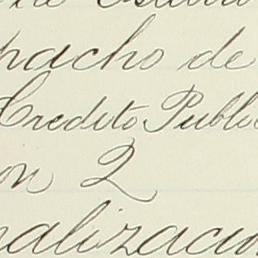 pacho de
Credito Public
on 2
nalizacion